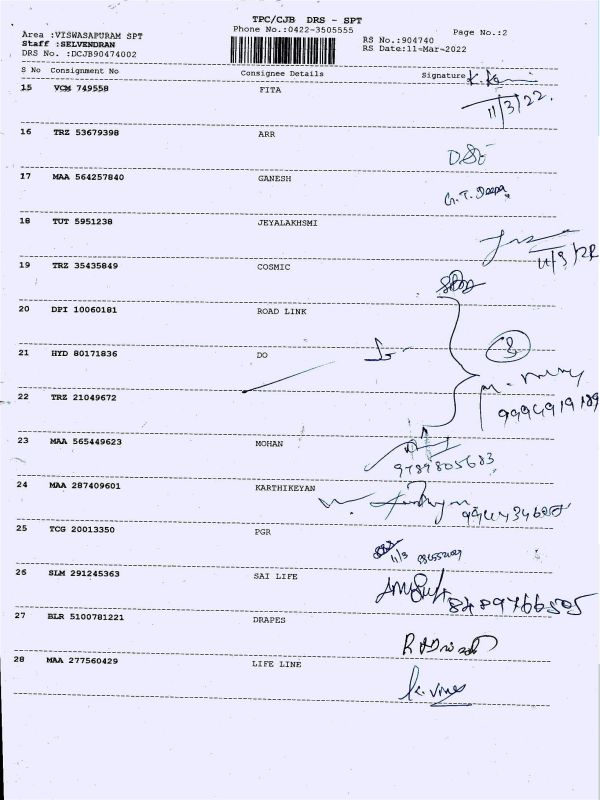 TPC/CJB DRS - SPT
Area :VISWASAPURAM SPT
Phone No.:0422-3505555
Page No.:2
Staff :SELVENDRAN
RS No.:904740
DRS No. :DCJB90474002
RS Date:11-Mar-2022
S No Consignment No Consignee Details Signature
15 VCM 749558 FITA
11/3/22.
16 TRZ 53679398 ARR
17 MAA 564257840 GANESH
G.T. Deepa
18 TUT 5951238 JEYALAKHSMI
11/3/22
19 TRZ 35435849 COSMIC
20 DPI 10060181 ROAD LINK
21 HYD 80171836 DO
22 TRZ 21049672
9994919189
23 MAA 565449623 MOHAN
9789805683
24 MAA 287409601 KARTHIKEYAN
25 TCG 20013350 PGR
11/3
26 SLM 291245363 SAI LIFE
8489766505
27 BLR 5100781221 DRAPES
28 MAA 277560429 LIFE LINE